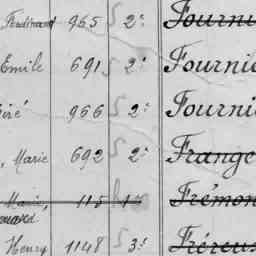 Ferdinand 965 S 2e Fourni
Emile 691 S 2e Fourni
iré 966 S 2e Fourni
, Marie 692 S 2e Frange
Marie, 115 1e Frémon
Henry 1148 S 3e Fréreus